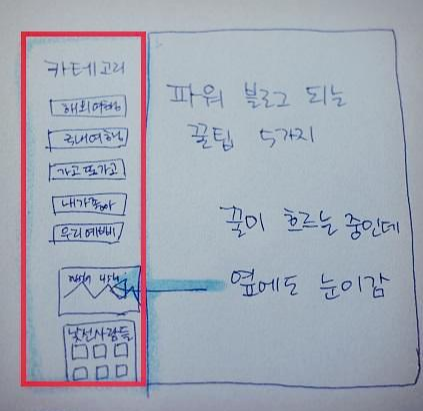 카테고리
해외여행
국내여행
가고 또 가고
내가 좋아
우리 예삐
낯선 사람들
파워 블로그 되는
꿀팁 5가지
꿀이 흐르는 중인데
옆에도 눈이 감